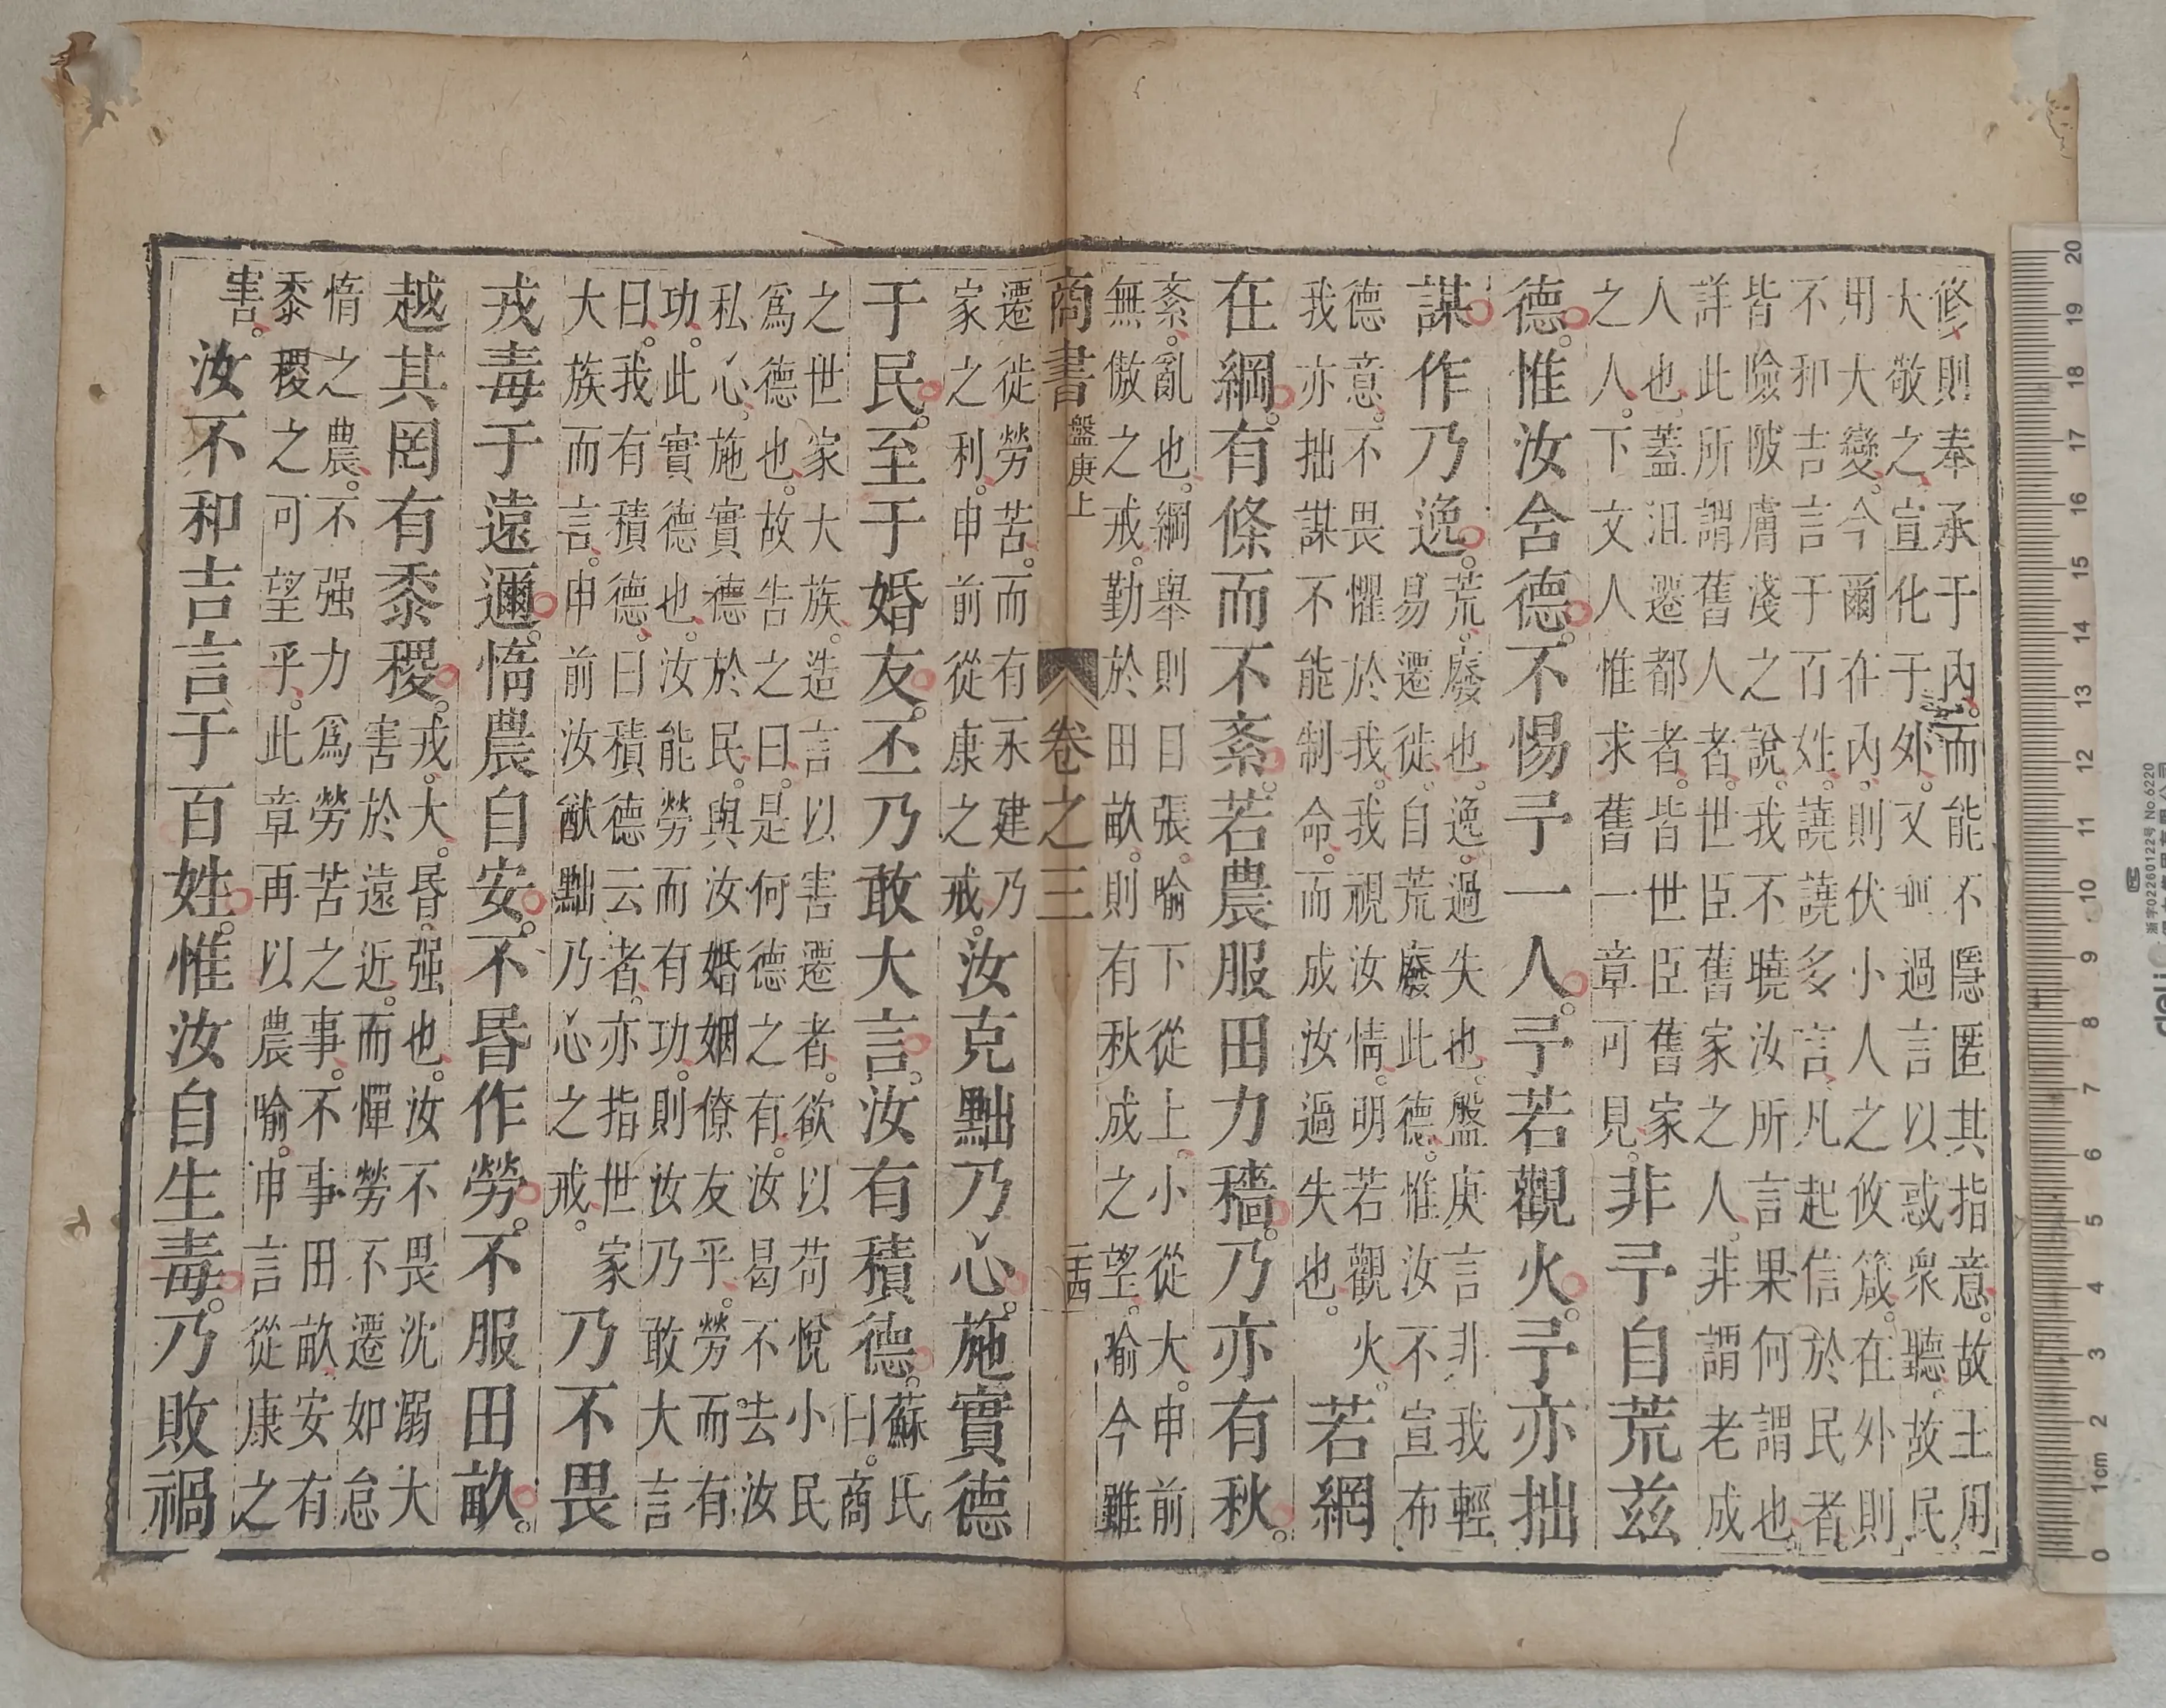 修則奉承于內。而能不隱匿其指意。故王用
大敬之。宣化于外。又無過言以惑衆聽。故民
用大變。今爾在內。則伏小人之攸箴。在外則
不和吉言于百姓。譊譊多言。凡起信於民者
皆險陂膚淺之說。我不曉汝所言果何謂也。
詳此所謂舊人者。世臣舊家之人。非謂老成
人也。蓋沮遷都者。皆世臣舊家
之人。下文人惟求舊一章可見。
非予自荒茲
德。惟汝舍德。不惕予一人。予若觀火。予亦拙
謀作乃逸。
荒。廢也。逸。過失也。盤庚言非我輕
易遷徙。自荒廢此德。惟汝不宣布
德意。不畏懼於我。我視汝情。明若觀火。
我亦拙謀不能制命。而成汝過失也。
若網
在綱。有條而不紊。若農服田力穡。乃亦有秋。
紊。亂也。綱舉則目張。喻下從上。小從大。申前
無傲之戒。勤於田畝。則有秋成之望。喻今雖
商書
盤庚上
卷之三
遷徙勞苦。而有永建乃
家之利。申前從康之戒。
汝克黜乃心。施實德
于民。至于婚友。丕乃敢大言。汝有積德。
蘇氏
曰。商
之世家大族。造言以害遷者。欲以苟悅小民
爲德也。故告之曰。是何德之有。汝曷不去汝
私心。施實德於民。與汝婚姻僚友乎。勞而有
功。此實德也。汝能勞而有功。則汝乃敢大言
曰。我有積德。曰積德云者。亦指世家
大族而言。申前汝猷黜乃心之戒。
乃不畏
戎毒于遠邇。惰農自安。不昬作勞。不服田畝。
越其罔有黍稷。
戎。大。昬。强也。汝不畏沈溺大
害於遠近。而憚勞不遷。如怠
惰之農。不强力爲勞苦之事。不事田畝。安有
黍稷之可望乎。此章再以農喻。申言從康之
害。
汝不和吉言于百姓。惟汝自生毒。乃敗禍